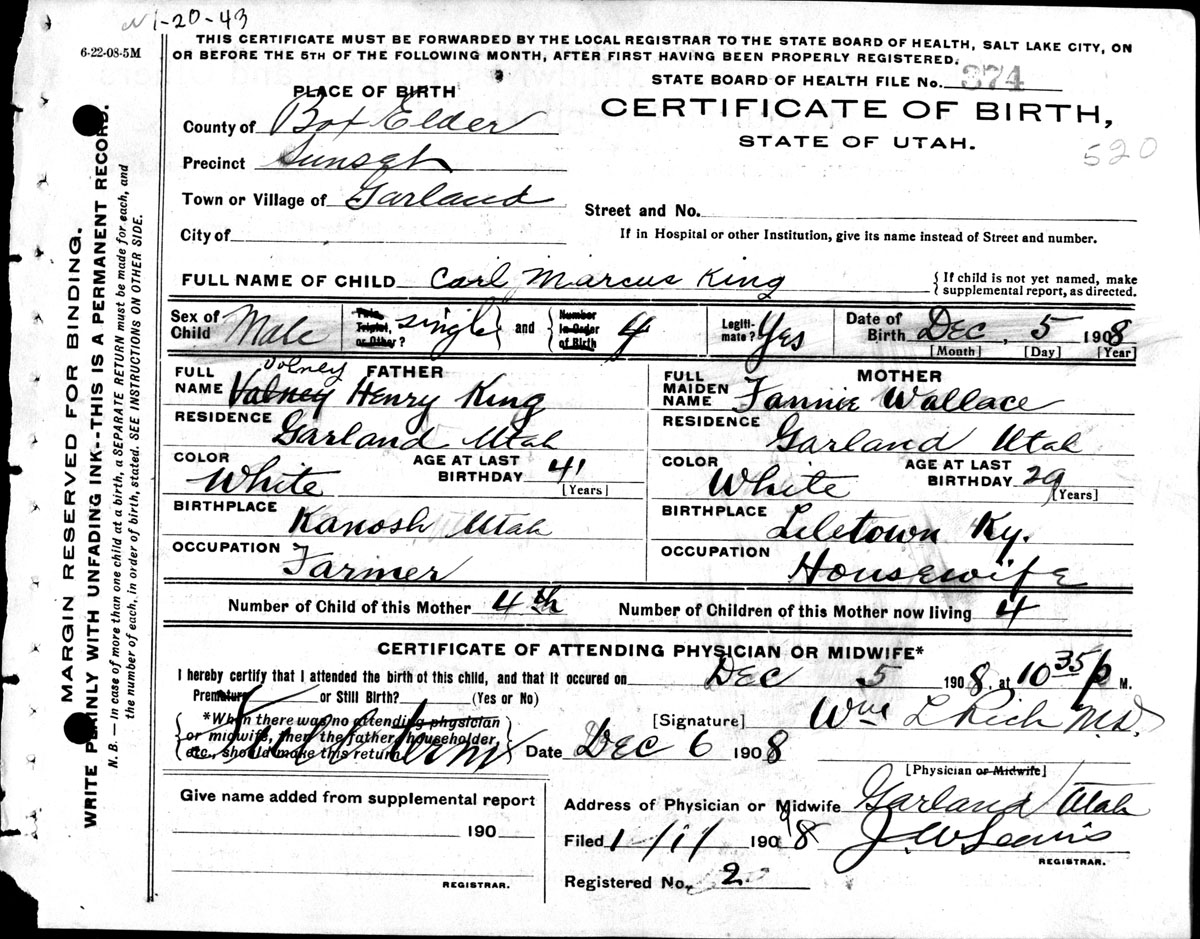 1-20-43
6-22-08-5M
THIS CERTIFICATE MUST BE FORWARDED BY THE LOCAL REGISTRAR TO THE STATE BOARD OF HEALTH, SALT LAKE CITY, ON
OR BEFORE THE 5TH OF THE FOLLOWING MONTH, AFTER FIRST HAVING BEEN PROPERLY REGISTERED.
STATE BOARD OF HEALTH FILE No. 374
PLACE OF BIRTH
CERTIFICATE OF BIRTH,
STATE OF UTAH.
520
County of Box Elder
Precinct Sunset
Town or Village of Garland
Street and No.
City of
If in Hospital or other Institution, give its name instead of Street and number.
FULL NAME OF CHILD Carl Marcus King
{ If child is not yet named, make
supplemental report, as directed.
Sex of Child Male
Twin, Triplet, or Other? single } and { Number in Order of Birth 4
Legiti-mate? Yes
Date of Birth Dec, 5 1908
[Month] [Day] [Year]
FATHER
FULL NAME Valney Volney Henry King
RESIDENCE Garland Utah
COLOR White AGE AT LAST BIRTHDAY 41
[Years]
BIRTHPLACE Kanosh Utah
OCCUPATION Farmer
MOTHER
FULL MAIDEN NAME Fannie Wallace
RESIDENCE Garland Utah
COLOR White AGE AT LAST BIRTHDAY 29
[Years]
BIRTHPLACE Liletown Ky.
OCCUPATION Housewife
Number of Child of this Mother 4th Number of Children of this Mother now living 4
CERTIFICATE OF ATTENDING PHYSICIAN OR MIDWIFE*
I hereby certify that I attended the birth of this child, and that it occured on Dec 5 1908. at 10 35 p M.
Premature or Still Birth? (Yes or No)
{ *When there was no attending physician
or midwife, then the father, householder,
etc., should make this return }
[Signature] Wm L Rich M.D.
Date Dec 6 1908
[Physician or Midwife]
Give name added from supplemental report
190
REGISTRAR.
Address of Physician or Midwife Garland Utah
Filed 1/1/ 1908 J. W. Lewis
REGISTRAR.
Registered No. 2
MARGIN RESERVED FOR BINDING.
WRITE PLAINLY WITH UNFADING INK--THIS IS A PERMANENT RECORD.
N. B. — In case of more than one child at a birth, a SEPARATE RETURN must be made for each, and
the number of each, in order of birth, stated. SEE INSTRUCTIONS ON OTHER SIDE.